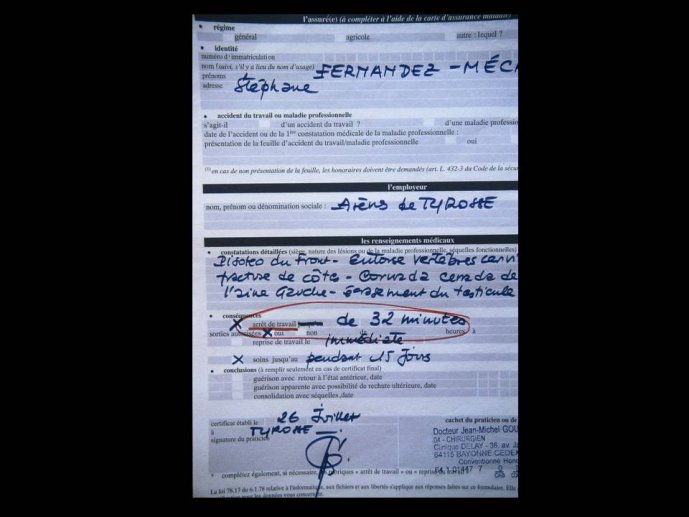 l'assuré(e) (à compléter à l'aide de la carte d'assurance maladie)
• régime
général agricole autre : lequel ?
• identité
numéro d'immatriculation
nom (suivi, s'il y a lieu du nom d'usage) FERNANDEZ - MÉC
prénoms Stéphane
adresse
• accident du travail ou maladie professionnelle
s'agit-il d'un accident du travail ? d'une maladie professio
date de l'accident ou de la 1ère constatation médicale de la maladie professionnelle :
présentation de la feuille d'accident du travail/maladie professionnelle oui
(1) en cas de non présentation de la feuille, les honoraires doivent être demandés (art. L. 432-3 du Code de la sécur
l'employeur
nom, prénom ou dénomination sociale : Arènes de TYROSSE
les renseignements médicaux
• constatations détaillées (siège, nature des lésions ou de la maladie professionnelle, séquelles fonctionnelles)
du Front - Entorse vertèbres cervi
fracture de côtes - Cornada cerrada de
l'aine Gauche - du testicule
• conséquences
X arrêt de travail de 32 minutes
sorties autorisées X oui non de heures à
reprise de travail le immédiate
X soins jusqu'au pendant 15 jours
• conclusions (à remplir seulement en cas de certificat final)
guérison avec retour à l'état antérieur, date
guérison apparente avec possibilité de rechute ultérieure, date
consolidation avec séquelles, date
certificat établi le 26 Juillet
à TYROSSE
signature du praticien
cachet du praticien ou de
Docteur Jean-Michel GOU
04 - CHIRURGIEN
Clinique DELAY - 36, av. Ja
64115 BAYONNE CEDEX
Conventionné Hono
64 1 01447 7
• complétez également, si nécessaire, les rubriques « arrêt de travail » ou « reprise du travail »
La loi 78.17 du 6.1.78 relative à l'informatique, aux fichiers et aux libertés s'applique aux réponses faites sur ce formulaire. Elle